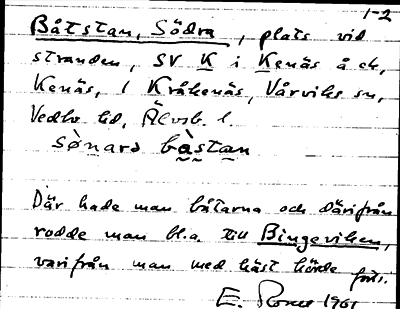 1-2
Båtstan, Södra, plats vid
stranden, SV K i Kenäs å ek,
Kenäs, / Kråkenäs, Vårviks sn,
Vedbo hd, Älvsb. l.
sònarə bàstan
Där hade man båtarna och därifrån
rodde man bl.a. till Bingeviken,
varifrån man med häst körde forts.
E. 1961